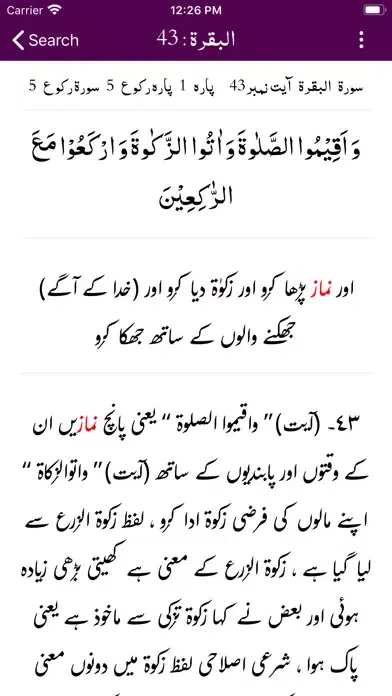 Carrier 12:26 PM
Search البقرة: 43
سورة البقرة آیت نمبر43 پارہ 1 پارہ رکوع 5 سورۃ رکوع 5
وَاَقِيْمُوا الصَّلٰوةَ وَاٰتُوا الزَّكٰوةَ وَارْكَعُوْا مَعَ
الرّٰكِعِيْنَ
اور نماز پڑھا کرو اور زکوٰۃ دیا کرو اور (خدا کے آگے)
جھکنے والوں کے ساتھ جھکا کرو
٤٣۔ (آیت) ” واقیموا الصلوۃ “ یعنی پانچ نمازیں ان
کے وقتوں اور پابندیوں کے ساتھ (آیت) ” واتوالزکاۃ “
اپنے مالوں کی فرضی زکوۃ ادا کرو ، لفظ زکوۃ الزرع سے
لیا گیا ہے ، زکوۃ الزرع کے معنی ہے کھیتی بڑھی زیادہ
ہوئی اور بعض نے کہا زکوۃ تزکی سے ماخوذ ہے یعنی
پاک ہوا ، شرعی اصلاحی لفظ زکوۃ میں دونوں معنی